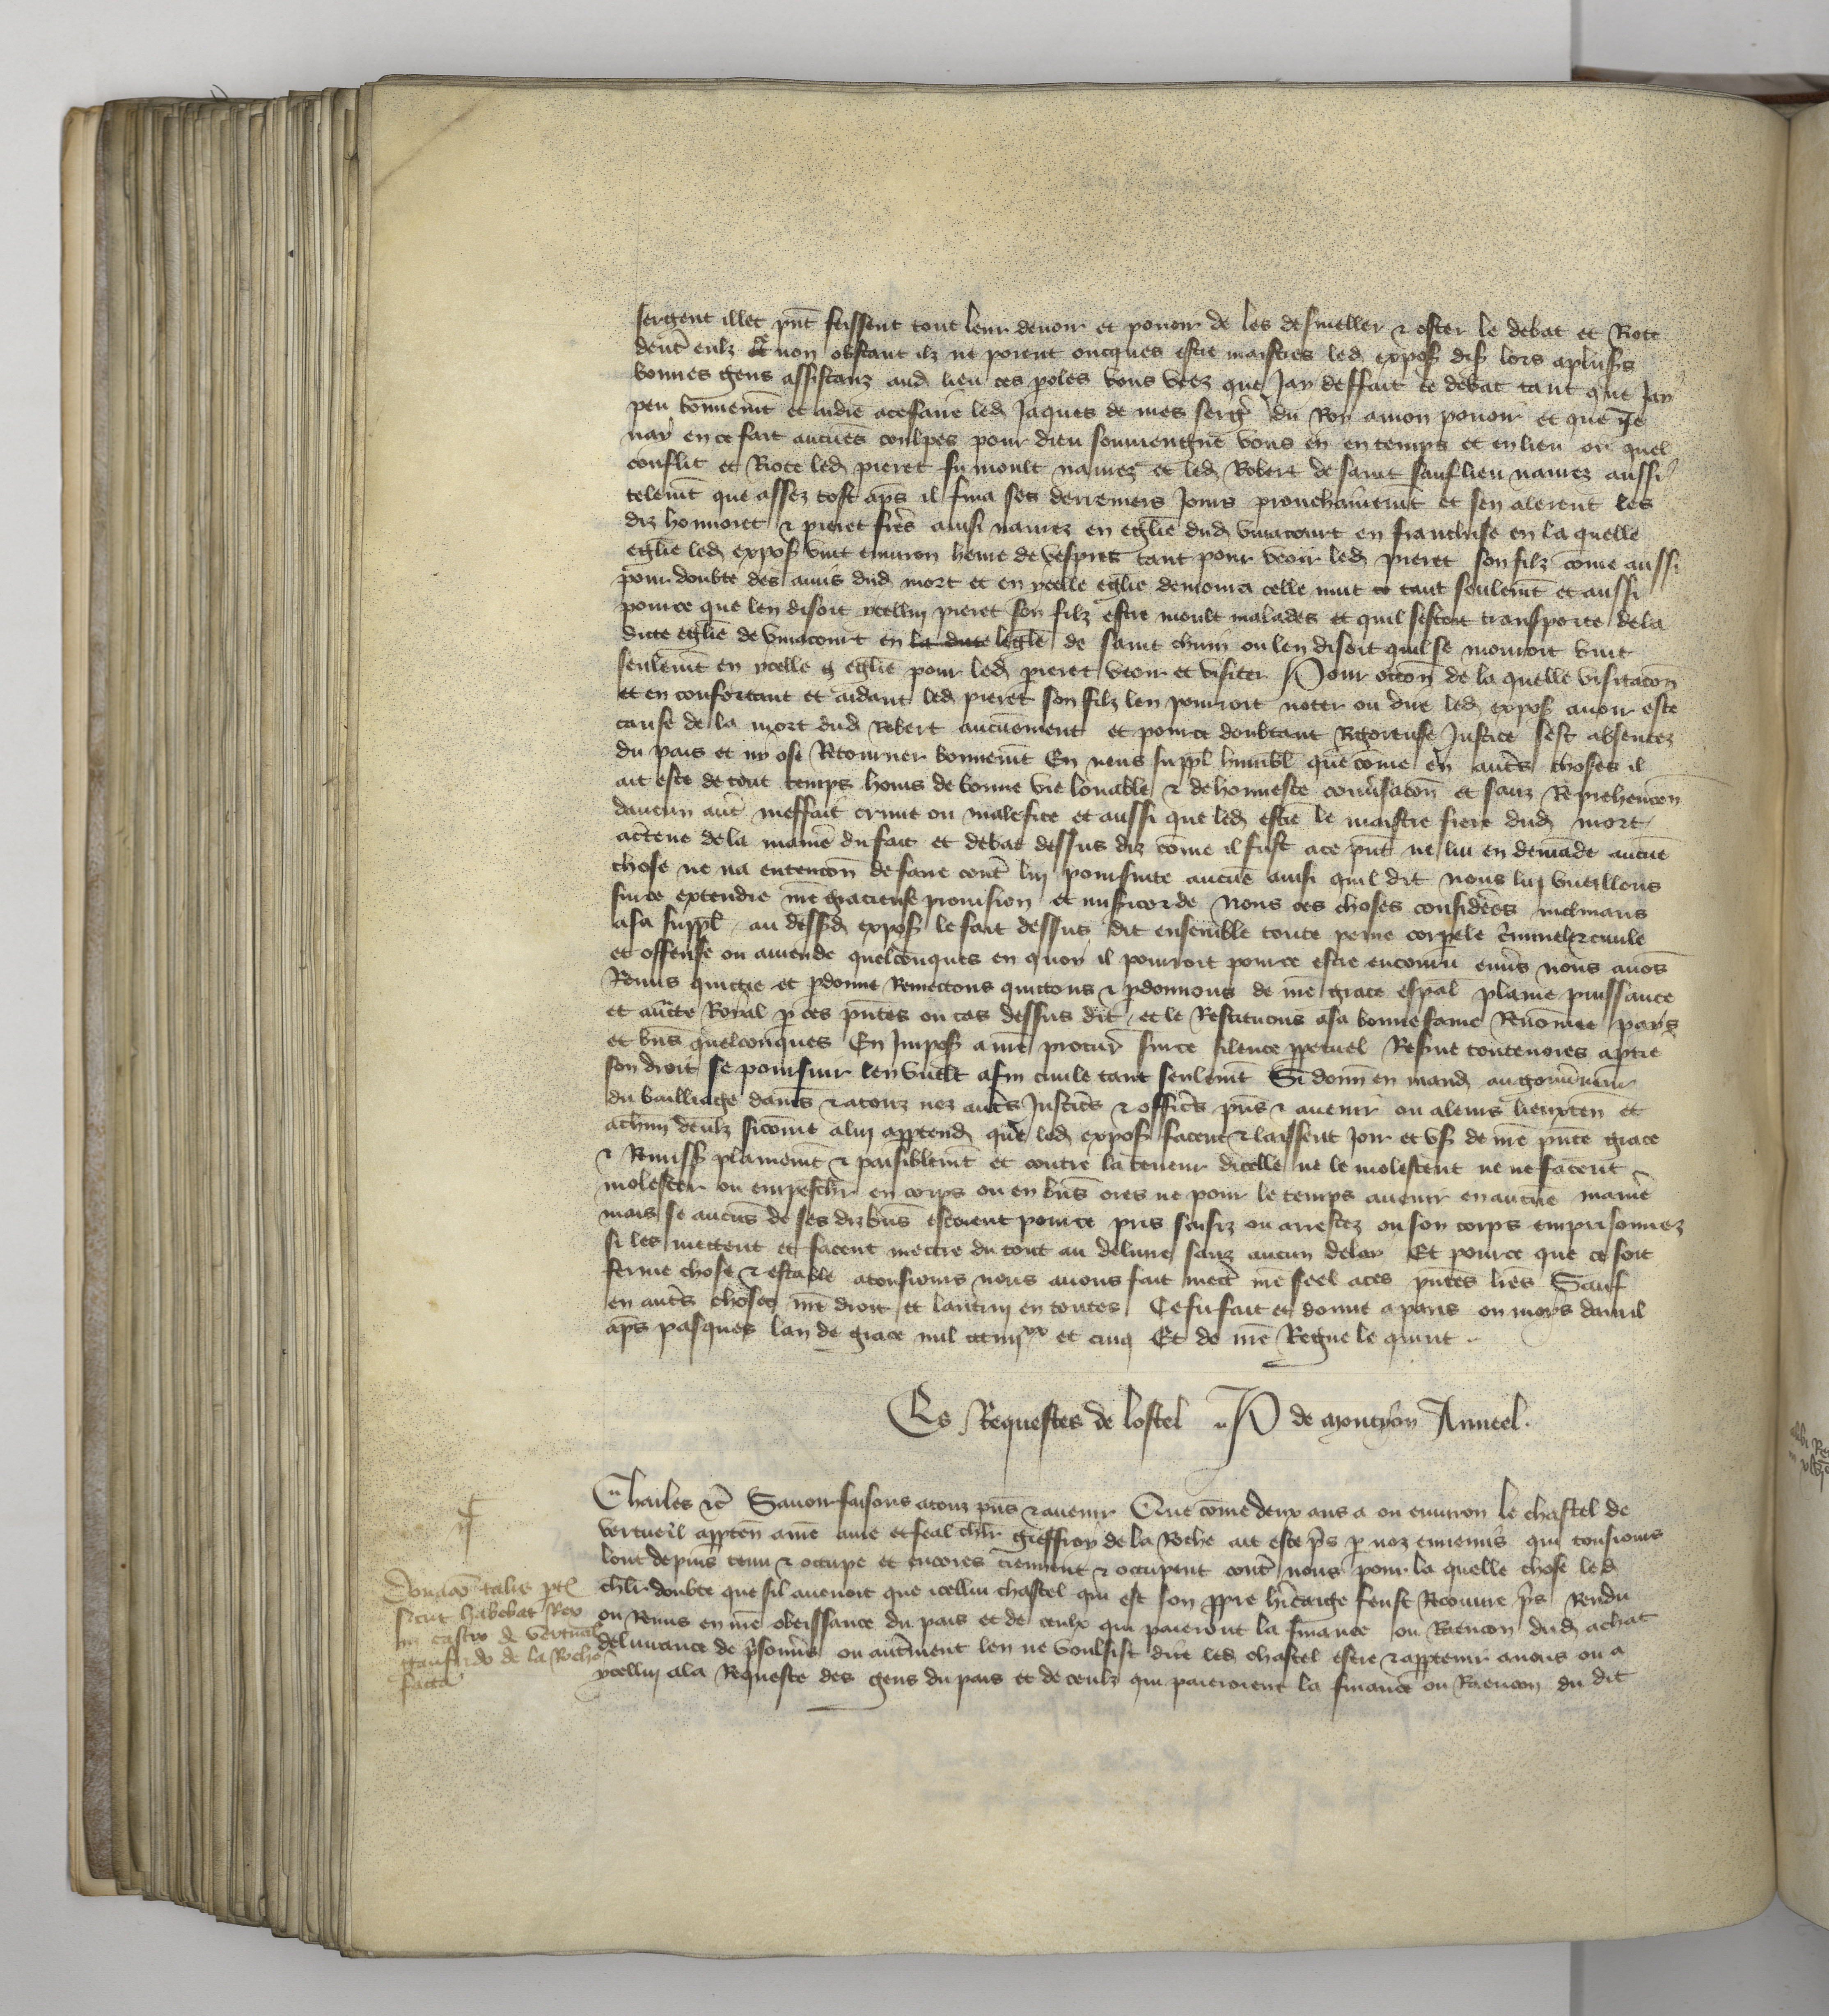 sergent illec pñt feissent tout leur devoir et povoir de les desmeller et oster le debat et Riote
dentr̃ eulz Et non obstant ilz ne porent oncques estre maistres led expos dist lors a plus's
bonnes gens assistanz aud lieu ces poles vous veez que jay deffait le debat tant que jay
peu bonnemẽt et aidie a ce faire led Jaques de mes serg̃ du Roy a mon povoir et que je
nay en ce fait aucũes coulpes pour dieu souviengne vous en en temps et en lieu ou quel
conflit et Riote led pieret fu moult navrez et led Robert de saint sauflieu navrez aussi
telemẽt que assez tost aps il fina ses derreniers jours prouchainemẽt et sen alerent les
diz honnoret et pieret fr̃es ainsi navrez en leglise dud vinacourt en franchise en la quelle
egl̃ie led expos vint environ heure de vespres tant pour veoir led pieret son filz cõme aussi
pour doubte des amis dud mort et en ycelle egl̃ie demoura celle nuit tant seulemẽt et aussi
pour ce que len disoit ycellui pieret son filz estre moult malades et quil sestoit transporte de la
dicte egl̃ie de vinacourt en la dicte legl̃ie de saint ou len disoit quil se mouroit vint
seulemẽt en ycelle egl̃ie pour led pieret veoir et visiter Pour occõn de la quelle visitacõn
et en confortant et aidant led pieret son filz len pourroit noter ou dire led expos avoir este
cause de la mort dud Robert aucunement et pour ce doubtant Rigoreuse Justice sest absentez
du pais et ny ose Retourner bonnemẽt En nous suppl humbl que cõme en autr̃s choses il
ait este de tout temps homs de bonne vie louable et de honneste conv̾sacõn et sanz Reprehencõn
daucun autr̃ meffait crime ou malefice et aussi que led estre le maistre frere dud mort
acertene de la manie du fait et debat dessus diz cõme il fust a ce pñt ne lui en demãde aucũe
chose ne na entencõn de faire contr̃ lui poursuite aucũe ainsi quil dit nous lui vueillons
sur ce extendre nr̃e gracieuse provision et misericorde Nous ces choses considerees inclinans
a sa suppl au dessusd expos le fait dessus dit ensemble toute peine corpele c̾minele et civile
et offense ou amende quelconques en quoy il pourroit pour ce estre encouru env̾s nous avõs
Remis quictie et pdonne Remectons quictons et pdonnons de nr̃e grace espal plaine puissance
et auctte Royal p ces p̃ntes ou cas dessus dit et le Restituons a sa bonne fame Renõmee pays
et bñs quelconques En Impos̃ a nr̃e procur̃ sur ce silence ppetuel Reserve toutevoies a ptie
son droit se poursuir len vuelt a fin civile tant seulemẽt Si donñ en mand au gouv̾nem̃
du bailliage damĩes et a touz noz autr̃s Justiciers et officĩs p̃ns et avenir ou a leurs lieuxten̄ et
a chũn deulz sicõme a lui apptend que led expos̃ facent et laissent joir et us̃ de nr̃e p̃nte grace
et Remiss̃ plainemẽt et paisiblemẽt et contre la teneur dicelle ne le molestent ne ne facent
molester ou empeschr̃ en corps ou en biñs ores ne pour le temps avenir en aucũe manie
mais se aucũs de ses diz biñs estoient pour ce pris saisiz ou arrestez ou son corps emprisonnez
si les mettent et facent mectre du tout au delivre sanz aucun delay Et pour ce que ce soit
ferme chose et estable a tousjours nous avons fait mectr̃ nr̃e seel a ces p̃ntes lr̃es Sauf
en autr̃s choses nr̃e droit et lautrui en toutes Ce fu fait et donne a paris ou moys davril
aps pasques lan de grace mil ccc iiij xx et cinq Et de nr̃e Regne le quint
Es Requestes de lostel P de montyon Anncel
Charles etc̃ Savoir faisons a touz p̃ns et avenir Que cõme deux ans a ou environ le chastel de
vertueil appten̄ a nr̃e ame et feal chlr̃ gieffroy de la Roche ait este p̾s p noz ennemis qui tousjours
lont depuis tenu et occupe et encores tiennent et occupent contr̃ nous pour la quelle chose led
chlr̃ doubte que sil avenoit que icellui chastel qui est son ppre h̾itaige feust Recouvre p̾s Rendu
ou Remis en nr̃e obeissance du pais et de ceulx qui paieront la finance ou Raencon dud achat
delivrance de p̾sonñs ou autr̃ment len ne voulsist dire led chastel estre et apptenir a nous ou a
ycellui a la Requeste des gens du pais et de ceulz qui paieroient la finance ou Raencon du dit
Donacõ talis ptẽ
sicut habebat Rex
in castro de vertueil
gaufrido de la Roche
facta